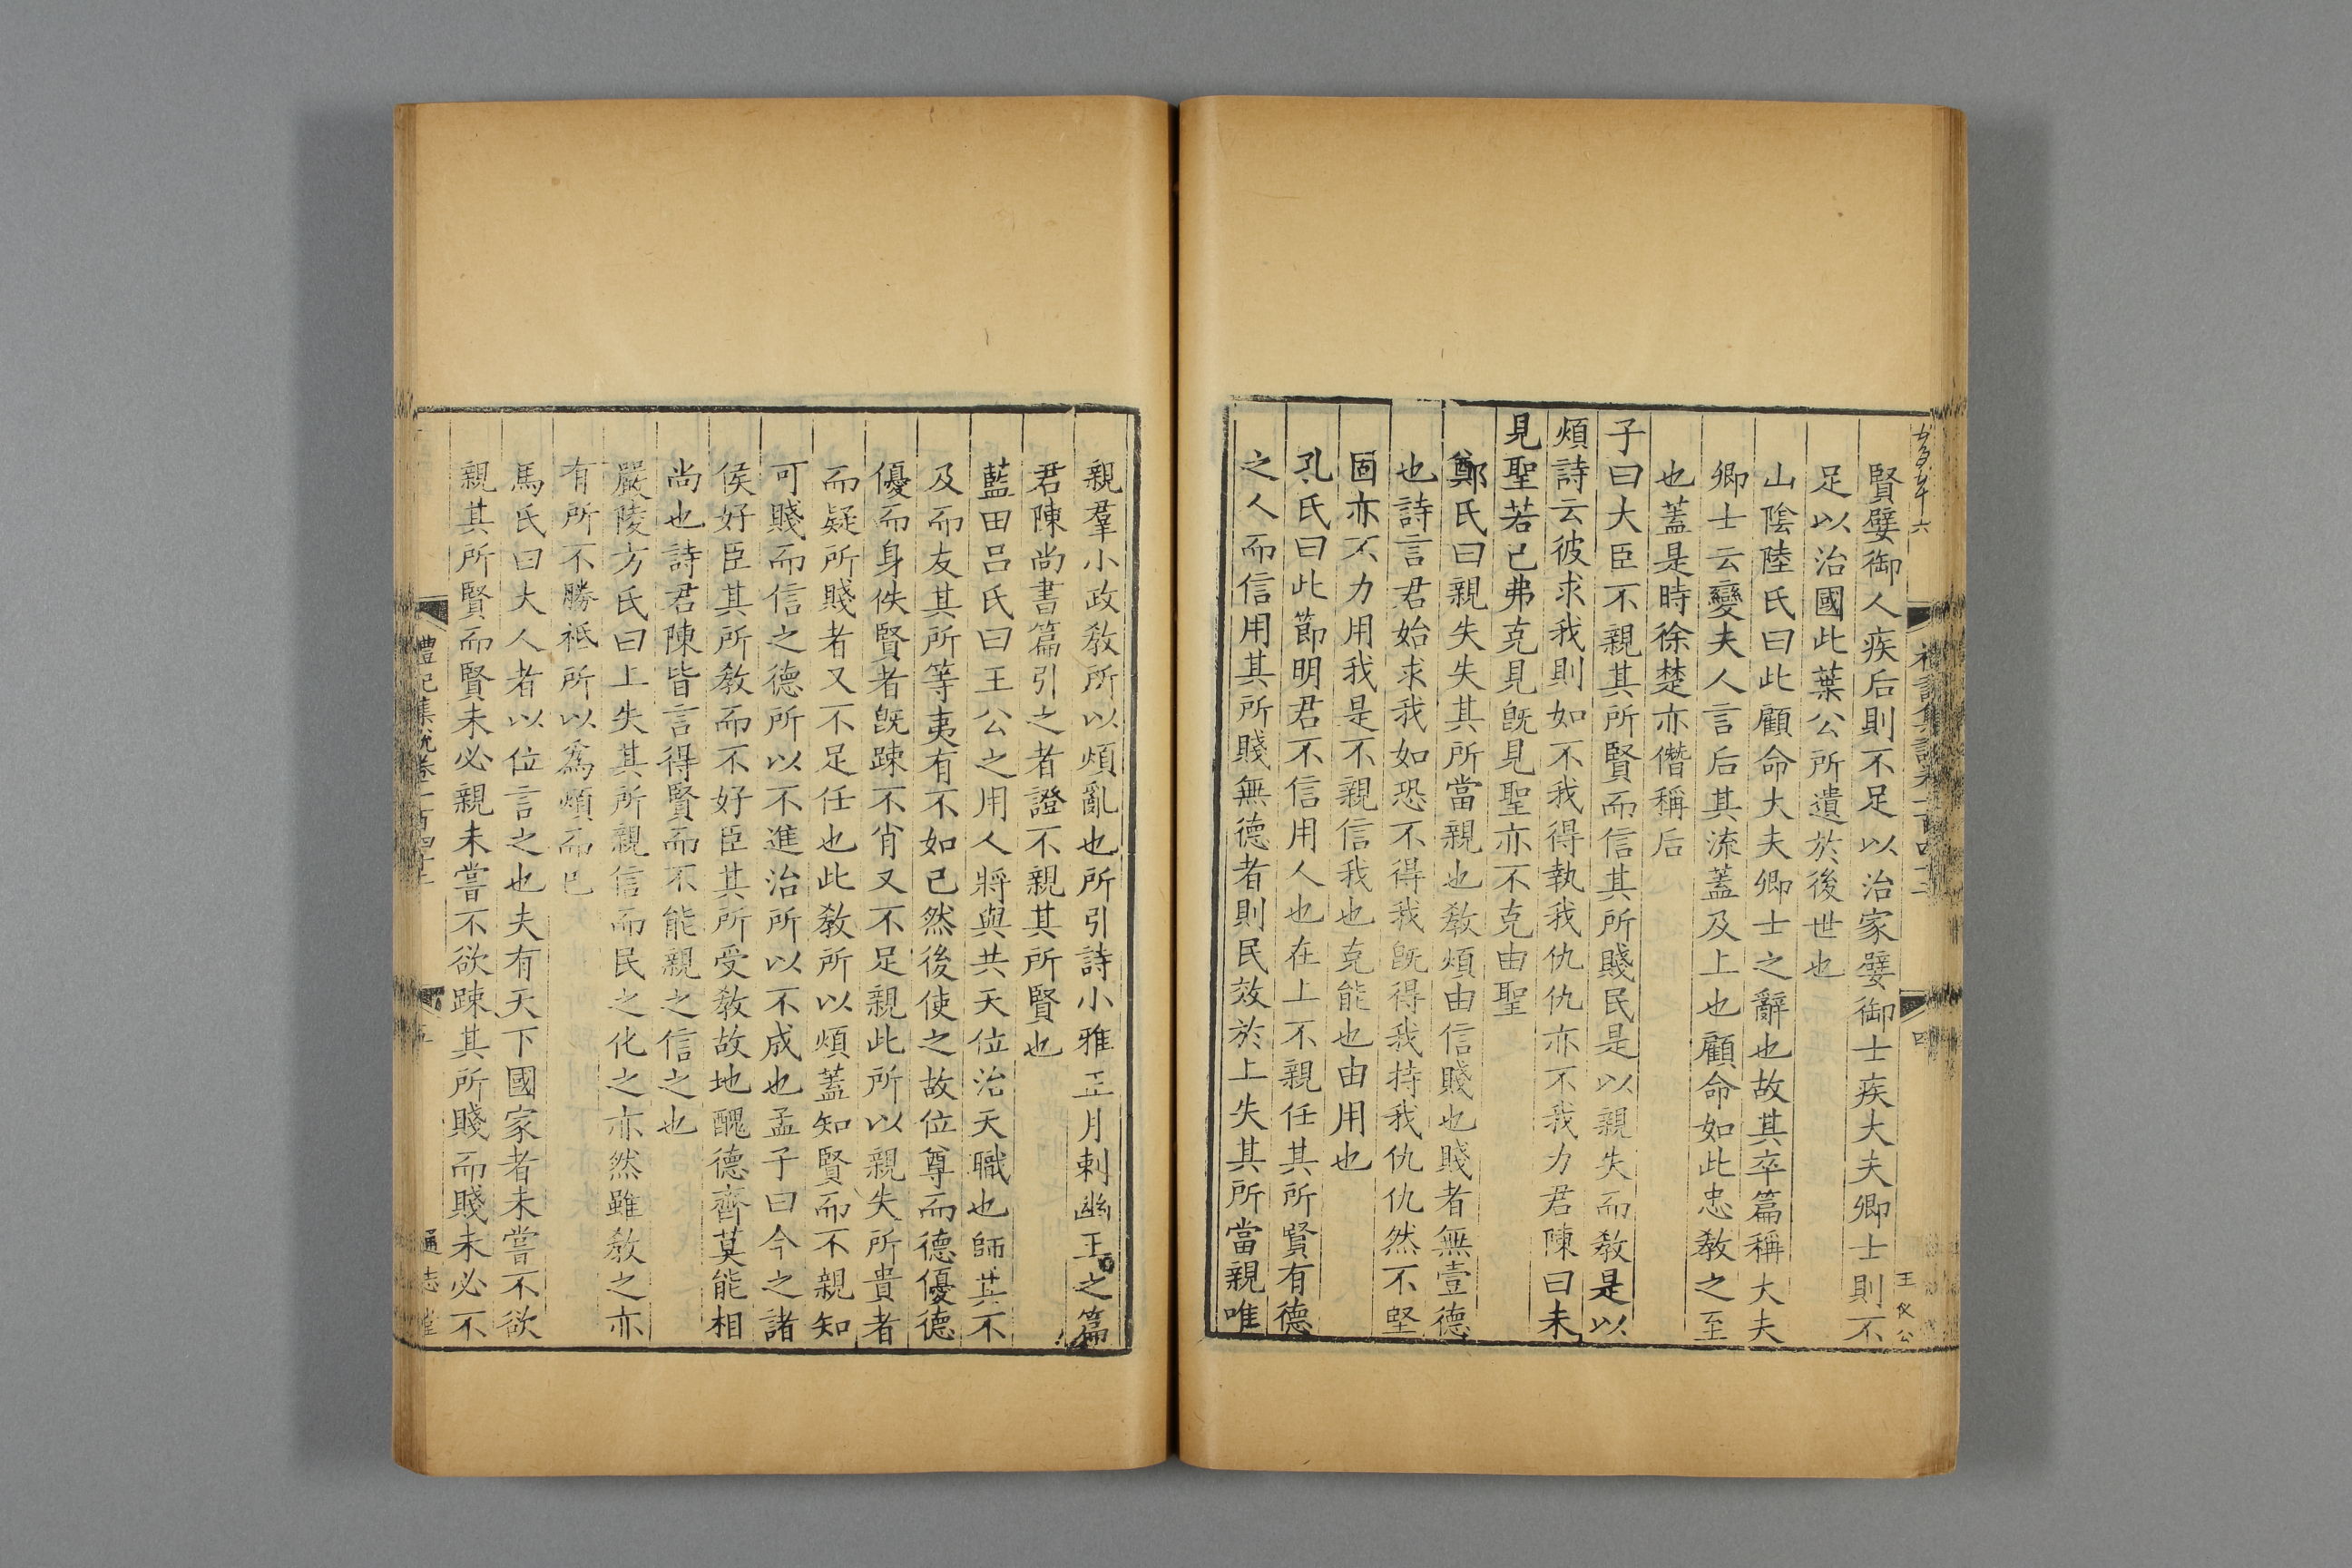 賢嬖御人疾后則不足以治家嬖御士疾大夫卿士則不
足以治國此葉公所遺於後世也
山陰陸氏曰此顧命大夫卿士之辭也故其卒篇稱大夫
卿士云變夫人言后其流蓋及上也顧命如此忠敎之至
也蓋是時徐楚亦僭稱后
子曰大臣不親其所賢而信其所賤民是以親失而敎是以
煩詩云彼求我則如不我得執我仇仇亦不我力君陳曰未
見聖若已弗克見旣見聖亦不克由聖
鄭氏曰親失失其所當親也敎煩由信賤也賤者無壹德
也詩言君始求我如恐不得我旣得我持我仇仇然不堅
固亦不力用我是不親信我也克能也由用也
孔氏曰此節明君不信用人也在上不親任其所賢有德
之人而信用其所賤無德者則民效於上失其所當親唯
親羣小政敎所以煩亂也所引詩小雅正月刺幽王之篇
君陳尚書篇引之者證不親其所賢也
藍田呂氏曰王公之用人將與共天位治天職也師其不
及而友其所等夷有不如已然後使之故位尊而德優德
優而身佚賢者旣踈不肖又不足親此所以親失所貴者
而疑所賤者又不足任也此敎所以煩蓋知賢而不親知
可賤而信之德所以不進治所以不成也孟子曰今之諸
侯好臣其所敎而不好臣其所受敎故地醜德齊莫能相
尚也詩君陳皆言得賢而不能親之信之也
嚴陵方氏曰上失其所親信而民之化之亦然雖敎之亦
有所不勝祗所以爲煩而已
馬氏曰大人者以位言之也夫有天下國家者未嘗不欲
親其所賢而賢未必親未嘗不欲踈其所賤而賤未必不
禮記集說卷一百四十二
四
王 公
五
通志堂